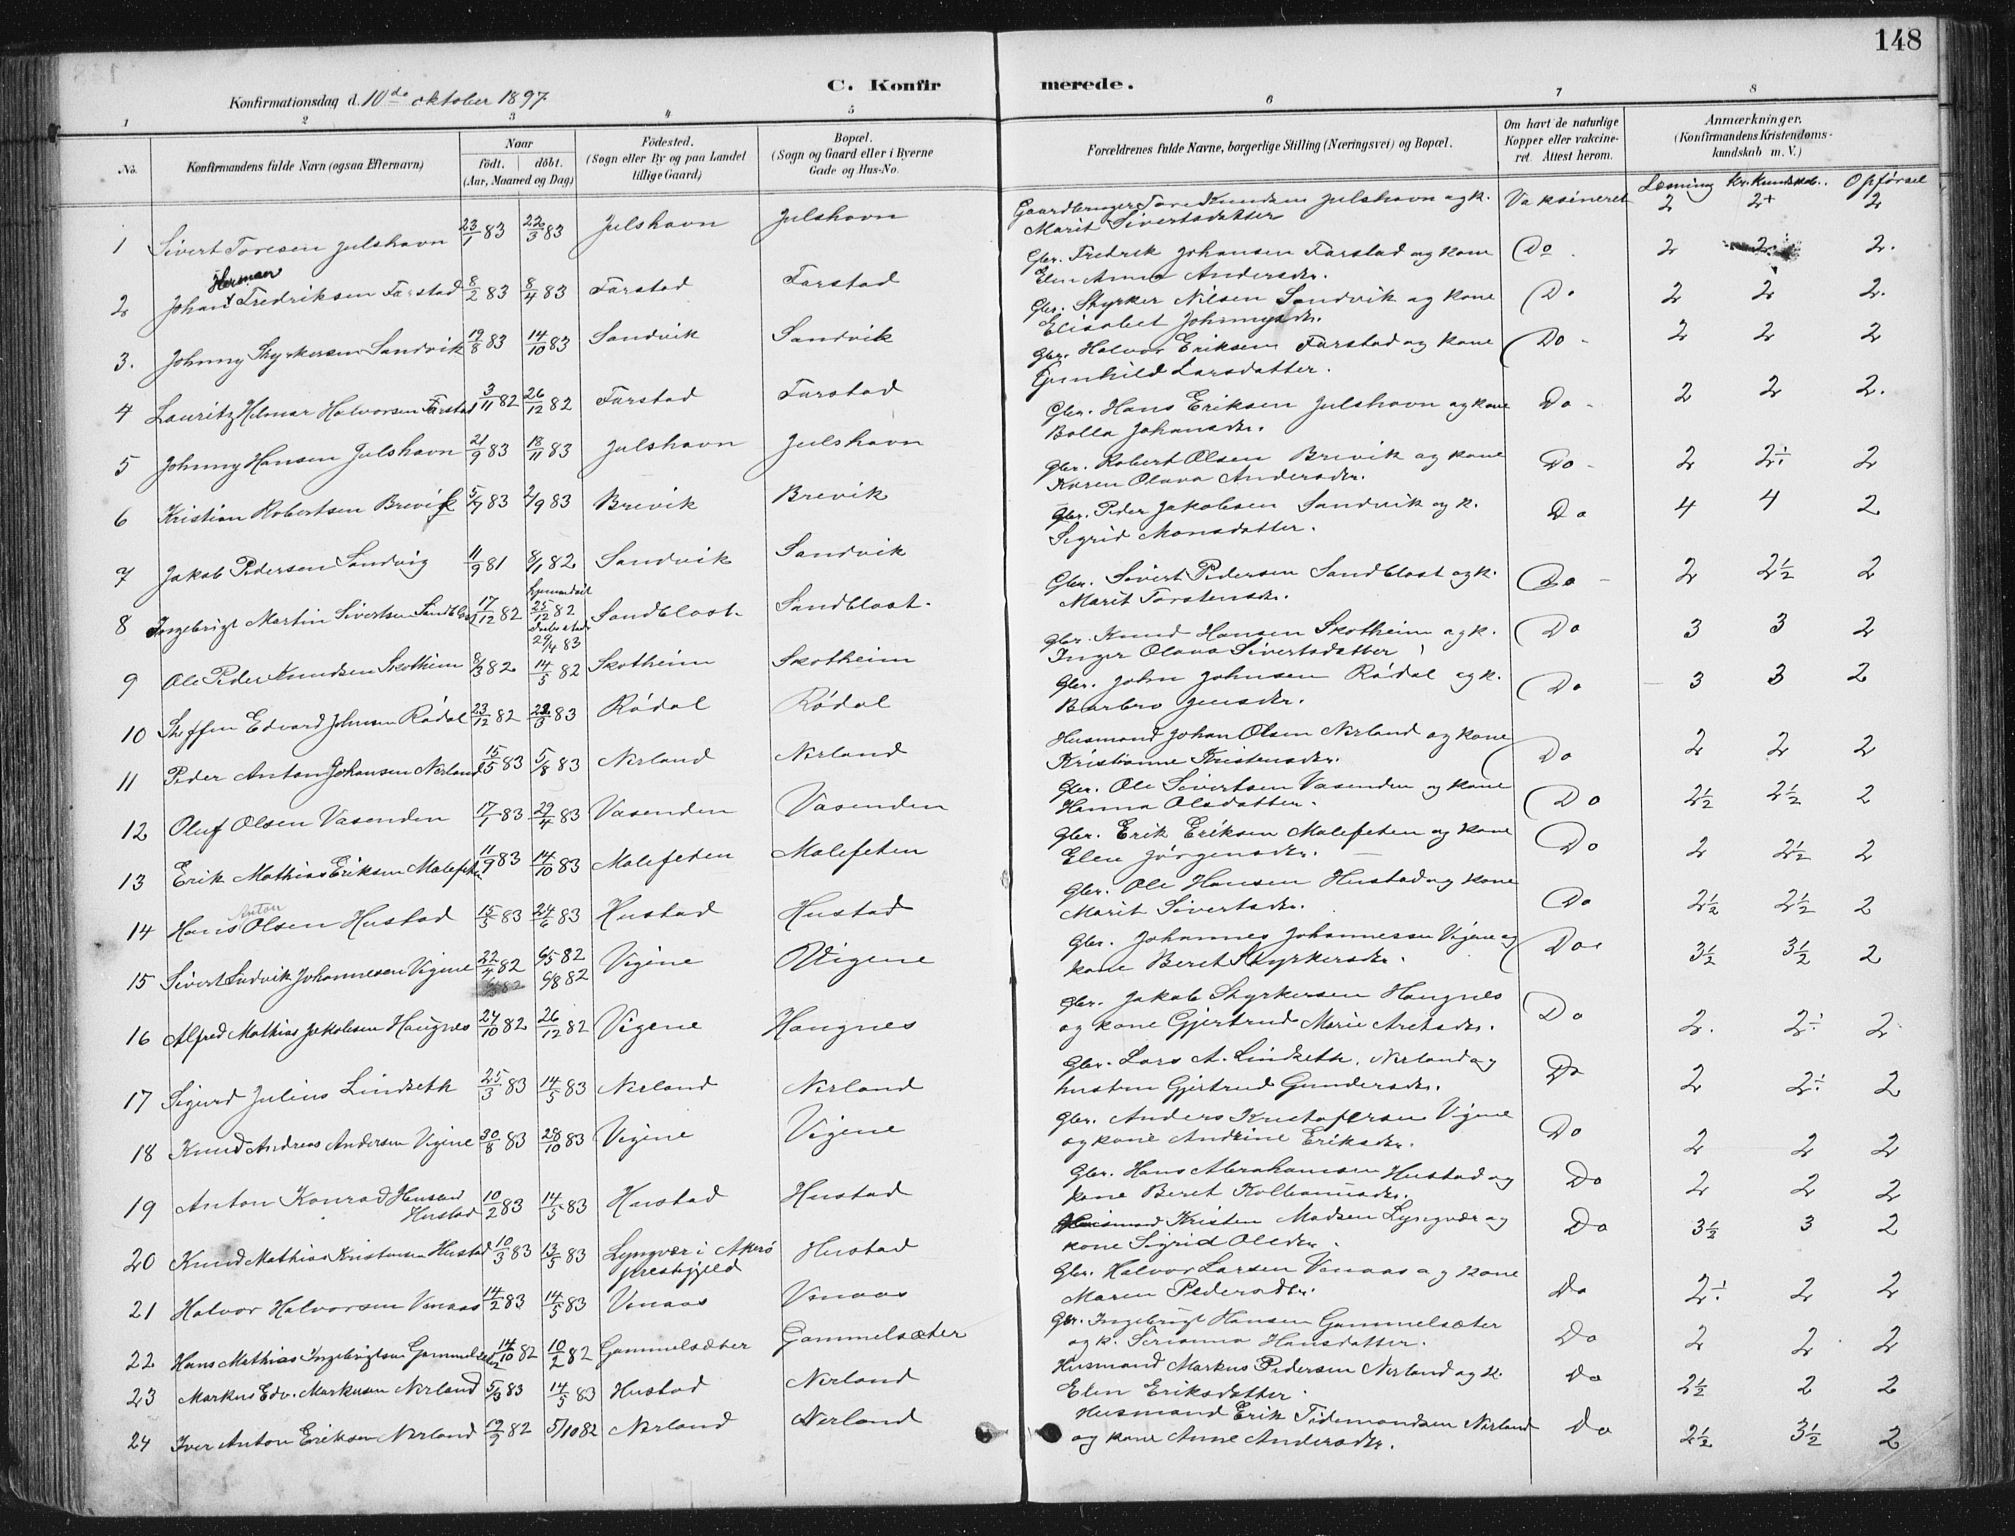 148
C. Konfirmerede.
Konfirmationsdag d. 10de oktober 1897
1 2 3 4 5 6 7 8
No. Konfirmandens fulde Navn (ogsaa Efternavn) Naar født. døbt. (Aar, Maaned og Dag) Fødested. (Sogn eller By og paa Landet tillige Gaard) Bopæl. (Sogn og Gaard eller i Byerne Gade og Hus-No. Forældrenes fulde Navne, borgerlige Stilling (Næringsvei) og Bopæl. Om havt de naturlige Kopper eller vakcineret. Attest herom. Anmærkninger. (Konfirmandens Kristendomskundskab m. V.)
Læsning Kr. Kundskab. Opførsel
1 Sivert Toresen Julshavn 23/1 83 22/3 83 Julshavn Julshavn Gaardbruger Tore Knudsen Julshavn og k. Marit Sivertsdatter Vaksineret 2 2+ 2
2 Johan Herman Fredriksen Farstad 8/2 83 8/4 83 Farstad Farstad Gbr. Fredrik Johansen Farstad og kone Elen Anna Andersdtr. Do. 2 2 2.
3. Johnny Styrkersen Sandvik 19/8 83 14/10 83 Sandvik Sandvik Gbr. Styrker Nilsen Sandvik og kone Elisabet Johnnysdtr. Do 2 2 2.
4 Lauritz Hilmar Halvorsen Farstad 3/11 82 26/12 82 Farstad Farstad Gbr. Halvor Eriksen Farstad og kone Gunhild Larsdatter. Do - 2 2 2
5 Johnny Hansen Julshavn 21/9 83 18/11 83 Julshavn Julshavn Gbr. Hans Eriksen Julshavn og kone Bolla Johansdtr. Do - 2 2 2.
6 Kristian Robertsen Brevik 5/7 83 2/9 83 Brevik Brevik Gbr. Robert Olsen Brevik og kone Karen Olava Andersdtr. Do - 2 2÷ 2
7 Jakob Pedersen Sandvig 11/9 81 8/1 82 Sandvik Sandvik Gbr. Peder Jakobsen Sandvik og k. Sigrid Monsdatter. Do 4 4 2
8 Ingebrigt Martin Sivertsen Sandblaast 17/12 82 hjemmedøbt 25/12 82 29/4 83 Sandblaast Sandblaast. Gbr. Sivert Pedersen Sandblaast og k. Marit Torstensdtr. Do - 2 2½ 2
9 Ole Peder Knudsen Skotheim 8/3 82 14/5 82 Skotheim Skotheim Gbr. Knud Hansen Skotheim og k. Inger Olava Sivertsdatter Do 3 3 2
10 Steffen Edvard Johnsen Rødal 23/12 82 22/3 83 Rødal Rødal Gbr. John Johnsen Rødal og k. Barbro Jensdtr. Do 3 3 2
11 Peder Anton Johansen Nerland 15/5 83 5/8 83 Nerland Nerland Husmand Johan Olsen Nerland og kone Kristianne Kristensdtr. Do 2 2 2
12 Oluf Olsen Vasenden 17/1 83 22/4 83 Vasenden Vasenden Gbr. Ole Sivertsen Vasenden og kone Hanna Olsdatter. Do 2½ 2½ 2
13 Erik Mathias Eriksen Malefeten 11/9 83 14/10 83 Malefeten Malefeten Gbr. Erik Eriksen Malefeten og kone Elen Jørgensdtr. Do 2 2½ 2
14 Hans Anton Olsen Hustad 15/5 83 24/6 83 Hustad Hustad Gbr. Ole Hansen Hustad og kone Marit Sivertsdtr. Do 2½ 2½ 2
15 Sivert Ludvik Johannesen Vigene 22/4 82 6/5 82 6/8 82 Vigene Vigene Gbr. Johannes Johannessen Vigene og kone Beret Styrkersdtr. Do 3½ 3½ 2
16 Alfred Mathias Jakobsen Haugnes 24/10 82 26/12 82 Vigene Haugnes Gbr. Jakob Styrkersen Haugnes og kone Gjertrud Marie Aretsdtr. Do 2. 2÷ 2
17 Sigurd Julius Lindseth 25/3 83 14/5 83 Nerland Nerland Gbr. Lars A. Lindseth, Nerland og hustru Gjertrud Gundersdtr. Do 2 2÷ 2
18 Knud Andreas Andersen Vigene 30/8 83 28/10 83 Vigene Vigene Gbr. Anders Kristofersen Vigene og kone Andrine Eriksdtr. Do 2 2 2
19 Anton Konrad Hansen Hustad 10/2 83 14/5 83 Hustad Hustad Gbr. Hans Abrahamsen Hustad og kone Beret Kolbeinsdtr. Do 2 2 2
20 Knud Mathias Kristensen Hustad 10/3 83 13/5 83 Lyngvær i Akerø prestegjeld Hustad Husmand Kristen Madsen Lyngvær og kone Sigrid Olsdtr. Do 3½ 3 2
21 Halvor Halvorsen Venaas 14/2 83 14/5 83 Venaas Venaas Gbr. Halvor Larsen Venaas og kone Maren Pedersdtr. Do 2÷ 2 2
22 Hans Mathias Ingebrigtsen Gammelsæter 14/10 82 10/2 82 Gammelsæter Gammelsæter Gbr. Ingebrigt Hansen Gammelsæter og k. Serianna Hansdatter. Do 2 2 2
23 Markus Edv. Markusen Nerland 5/3 83 14/5 83 Hustad Nerland Husmand Markus Pedersen Nerland og k. Elen Eriksdatter. Do 2½ 2 2
24 Iver Anton Eriksen Nerland 19/9 82 5/10 82 Nerland Nerland Husmand Erik Tidemandsen Nerland og kone Anne Andersdtr. Do 2½ 3½ 2